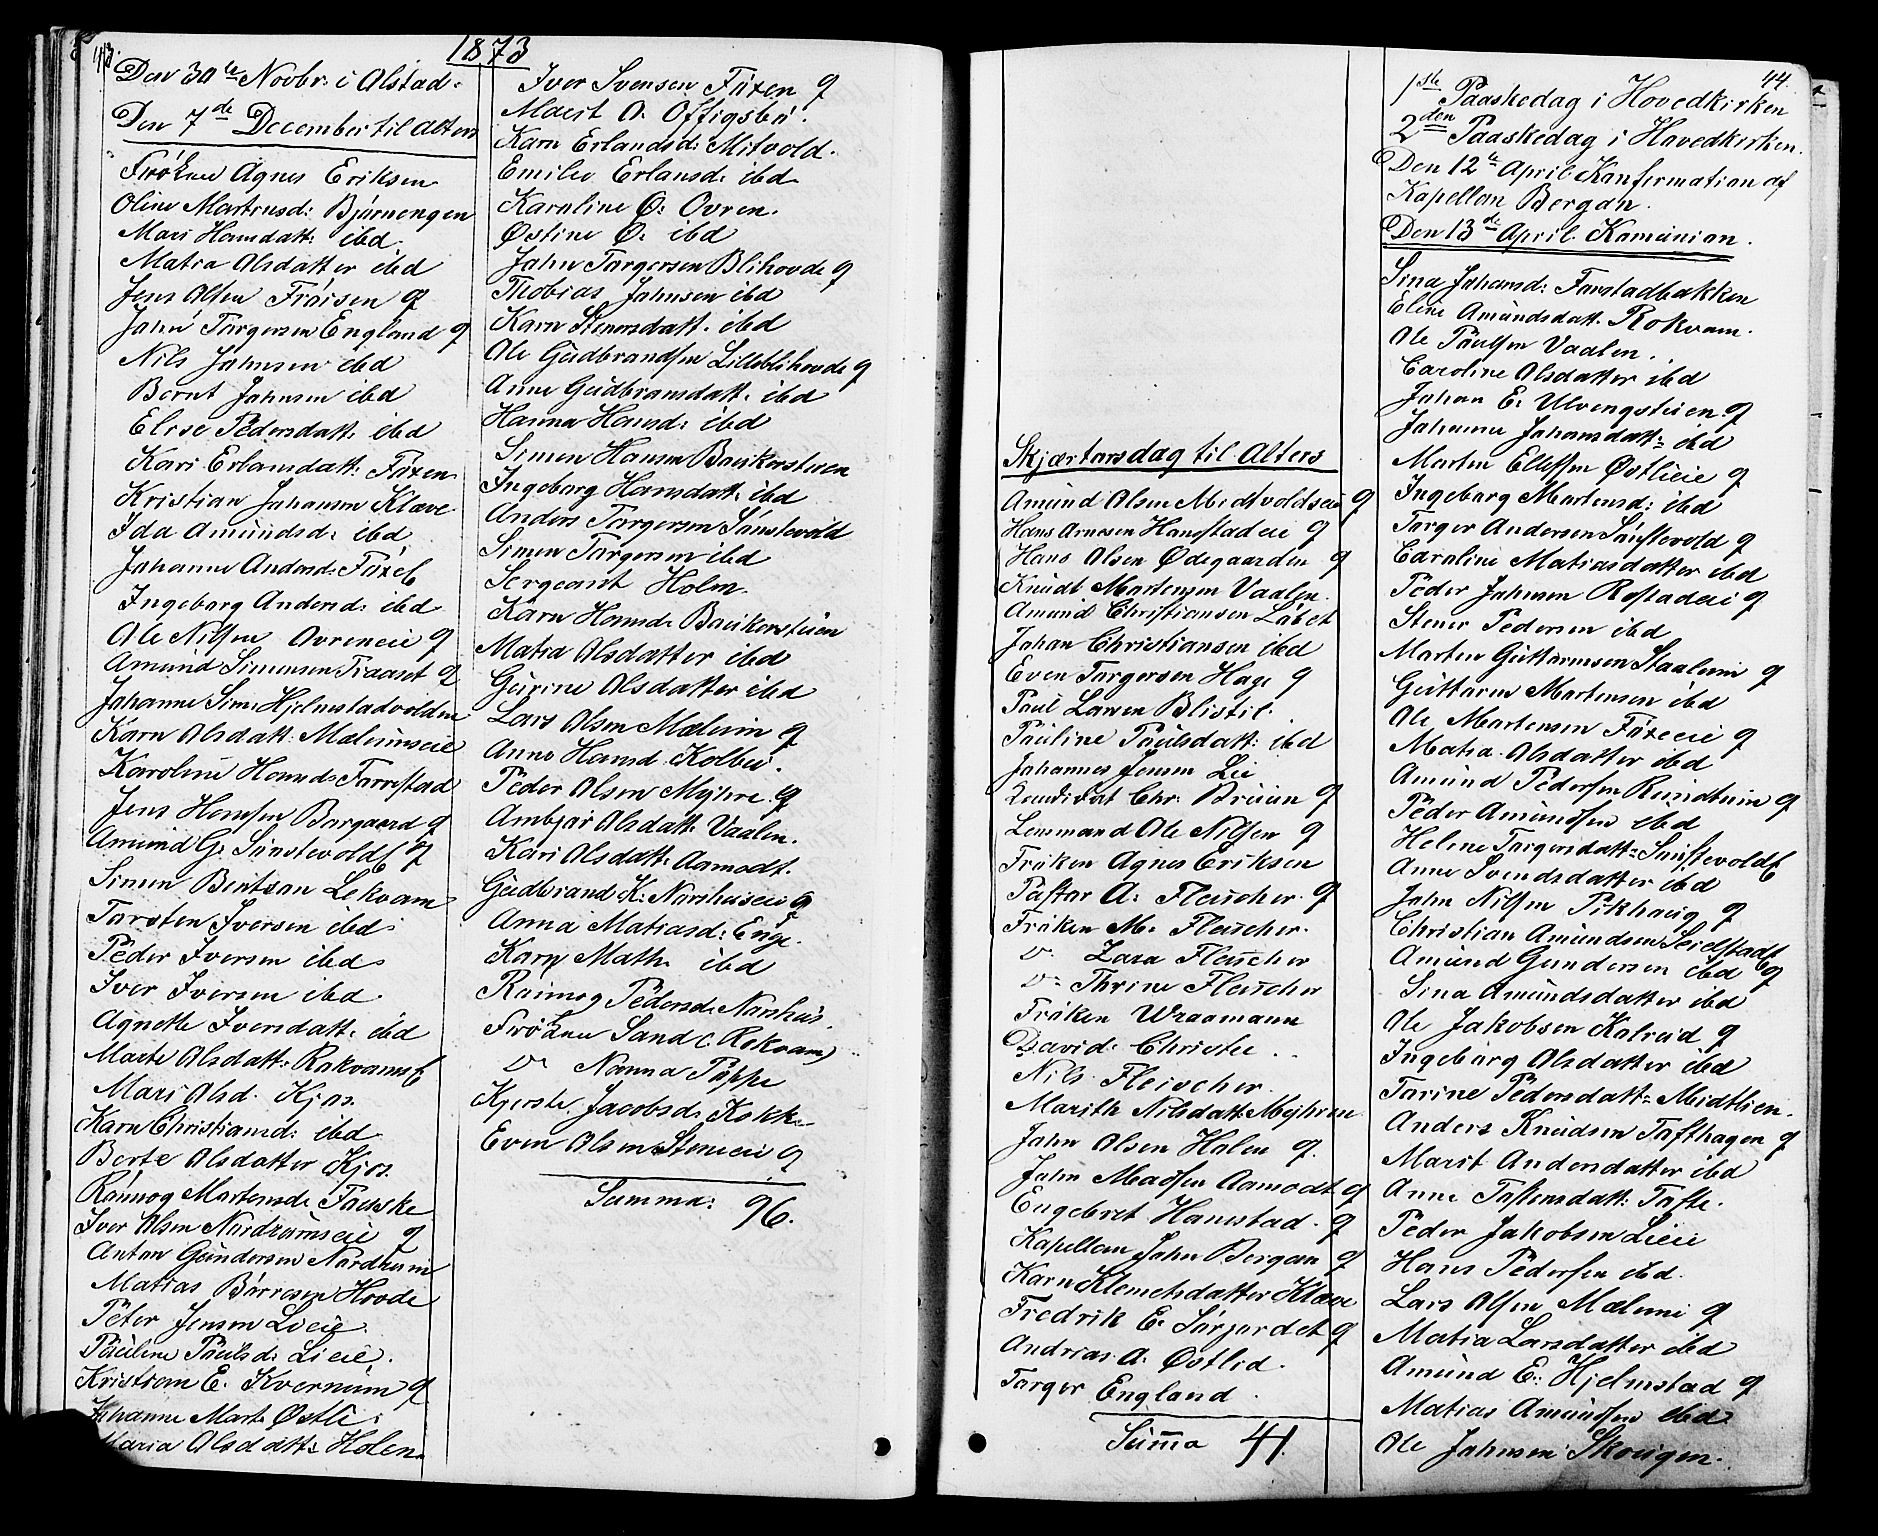 43.
1873
Den 30te Novbr. i Alstad.
Den 7de December til Alters
Frøken Agnes Eriksen
Oline Martnusd: Bjørnengen
Mari Hansdatt: ibd.
Matia Olsdatter ibd
Jens Olsen Frøisen q
John Torgersen England q
Nils Johnsen ibd
Bernt Johnsen ibd
Elise Pedersdatt: ibd
Kari Erlansdatt: Foxen
Kristian Johansen Klæve
Ida Amundsd: ibd
Johanne Andersd:
Ingeborg Andersd: ibd
Ole Nilsen Ovreneie q
Amund Simensen Traaset q
Johanne Sim: Hjelmstadvolden
Karn Olsdatt: Mælumseie
Karoline Hansd: Forrestad
Jens Hansen Borgaard q
Amund G: q
Simen Bentsan Lekvam
Torsten Iversen ibd:
Peder Iversen ibd:
Iver Iversen ibd.
Agnethe Iversdatt: ibd
Marte Olsdatt:
Mari Olsd. Kjos.
Karn Christiansd: ibd
Berte Olsdatter Kjos.
Rønnog Martensd:
Iver Olsen Nordrumseie q
Anton Gundersen Nordrum
Matias Børresen Hovde
Peter Jensen Lieie
Pauline Paulsd: Lieie.
Kristian E. Kvernum q
Johanne Mart: Østli:
Maria Olsdatt: Holen.
Iver Svensen Foxen q
Marit O: Offigsbø.
Karn Erlandsd: Mitvold.
Emilie Erlansd: ibd
Karoline O: Ovren.
Østine O: ibd
John Torgersen Blihovde q
Thobias Johnsen ibd
Karn Stenersdatt: ibd
Ole Gudbrandsen Lilleblihovde q
Anne Gudbransdatt: ibd
Hanna Hansd: ibd
Simen Hansen Baukersteien
Ingeborg Hansdatt: ibd
Anders Torgersen Sønstevold
Simen Torgersen ibd
Sergeant Holm.
Karn Hansd: Baukersteien
Matia Olsdatter ibd
Gurine Olsdatter ibd
Lars Olsen Mælum q
Anne Hansd: Kolbu.
Peder Olsen Myhre q
Ambjør Olsdatt: Vaalen.
Kari Olsdatt: Aamodt.
Gudbrand K: Norshuseie q
Anna Matiasd: Enge.
Karn Math: ibd
Rønnog Pedersd: Norshus.
Frøken Sand (: Rokvam)
v. Nanna Poppe
Kjersti Jacobsd: Kokk
Even Olsen Steneeie q
Summa: 96.
Skjærtorsdag til Alters
Amund Olsen Midtvoldseie q
Hans Arnesen Hanstadeie q
Hans Olsen Ødegaarden q
Knudt Martensen Vaalen
Amund Christiansen Løbet
Johan Christiansen ibd
Even Torgersen Hage q
Paul Larsen Blistil.
Pauline Paulsdatt: ibd
Johannes Jensen Lie
Kandidat Chr: Bruun q
Lensmand Ole Nilsen q
Frøken Agnes Eriksen
Pastor A: Fleischer q
Frøken M: Fleischer.
v. Zara Fleischer
v. Thrine Fleischer
Frøken Wraamann
David: Christie
Nils Fleischer.
Marithe Nilsdatt: Myhren
John Olsen Holen q.
John Madsen Aamodt q
Engebret Hanestad. q
Kapellan John Bergan q
Karn Klemetsdatter Klæve
Fredrik E: Sørjordet q
Andrias A: Østlid.
Torger England.
Summa 41.
44.
1ste Paaskedag i Hovedkirken
2den Paaskedag i Hovedkirken.
Den 12te April Konfirmation af
Kapellan Bergan.
Den 13de April. Komunion.
Sina Johansd: Forstadbakken
Eline Amundsdatt: Rokvam.
Ole Paulsen Vaalen.
Caroline Olsdatter ibd
Johan E: Ulvengsteien q
Johanne Johansdatt: ibd
Marten Ellefsen Østlieie q
Ingeborg Martensd: ibd
Torger Andersen Sønstevold q
Caroline Matiasdatter ibd
Peder Johnsen Rostadeie q
Stener Pedersen ibd
Marten Guttormsen Staaleeie q
Guttorm Martensen ibd
Ole Martensen Foxeeie q
Matia Olsdatter ibd
Amund Pedersen Rundtuin q
Peder Amundsen ibd
Helene Torgersdatt:
Anne Svendsdatter ibd
John Nilsen Pikhaug q
Christian Amundsen Seielstad
Amund Gundersen ibd q
Sina Amundsdatter ibd
Ole Jakobsen Kalrud q
Ingeborg Olsdatter ibd
Torine Pedersdatt: Midtlien.
Anders Knudsen Tofthagen q
Marit Andersdatter ibd
Anne Tostensdatt: Tofte.
Peder Jakobsen Lieie
Hans Pedersen ibd.
Lars Olsen Mælum q
Matia Larsdatter ibd
Amund E: Hjelmstad q
Matias Amundsen ibd
Ole Johnsen Skougen.